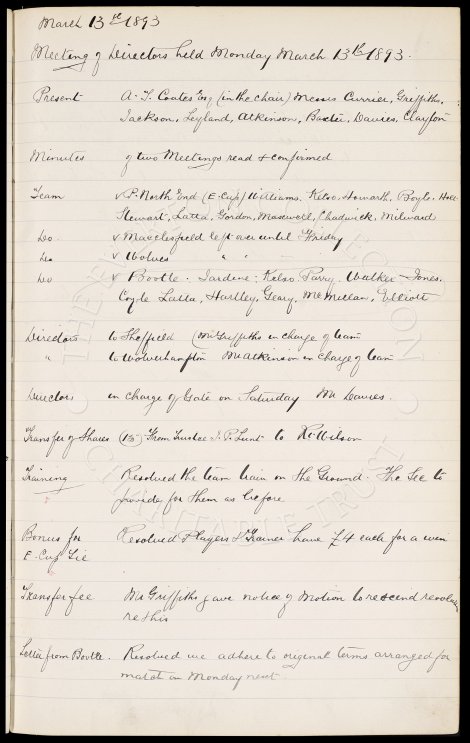 March 13th 1893
Meeting of Directors held Monday March 13th 1893.
Present A. T. Coates Esq (in the chair) Messrs Currier, Griffiths,
Jackson, Leyland, Atkinson, Baxter, Davies, Clayton
Minutes of two Meetings read & confirmed
Team v P. North End (E-Cup) Williams, Kelso, Howarth, Boyle, Holt
Stewart, Latta, Gordon, Maxwell, Chadwick, Milward
Do v Macclesfield left over until Friday
Do v Wolves " " "
Do v Bootle. Jardine, Kelso, Parry, Walker, Jones,
Coyle, Latta, Hartley, Geary, McMillan, Elliott
Directors to Sheffield (Mr Griffiths in charge of team
" to Wolverhampton Mr Atkinson in charge of team
Directors in charge of Gate on Saturday Mr Davies.
Transfer of Shares (15) From Trustee J. P. Lunt to Wilson
Training Resolved the team train on the Ground. The Sec to
provide for them as before
Bonus for Resolved Players & Trainer have £4 each for a win
E-Cup Tie
Transfer fee Mr Griffiths gave notice of Motion to rescend resolution
re this
Letter from Bootle. Resolved we adhere to original terms arranged for
match on Monday next.